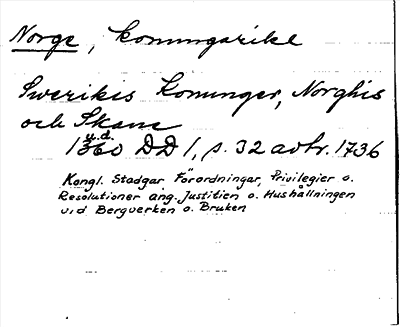 Norge, konungarike
Swerikis konunger, Norghis
och Skane
u.d.
1360 DD 1, s. 32 avtr. 1736
Kongl. Stadgar Förordningar, Privilegier o.
Resolutioner ang. Justitien o. Hushållningen
vid Bergverken o. Bruken